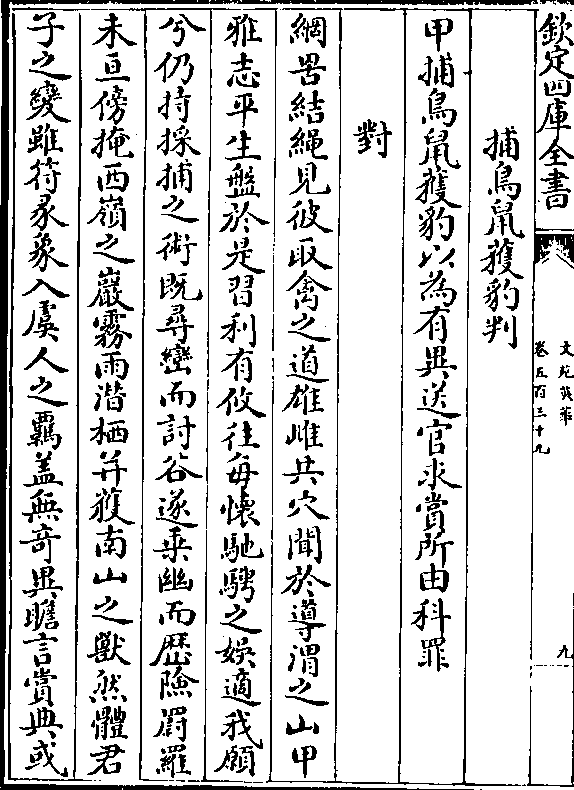 欽定四庫全書
文苑英華
卷五百三十九
九
捕鳥鼠獲豹判
甲捕鳥鼠獲豹以為有異送官求賞所由科罪
對
網罟結繩見彼取禽之道雄雌共穴聞於導渭之山甲
雅志平生盤於是習利有攸往每懷馳騁之娱適我願
兮仍持採捕之術既尋巒而討谷遂乗幽而歴險罻羅
未亘傍掩西嶺之巖霧雨潛棲并獲南山之獸然體君
子之變雖符彖象入虞人之羈盖無竒異瞻言賞典或